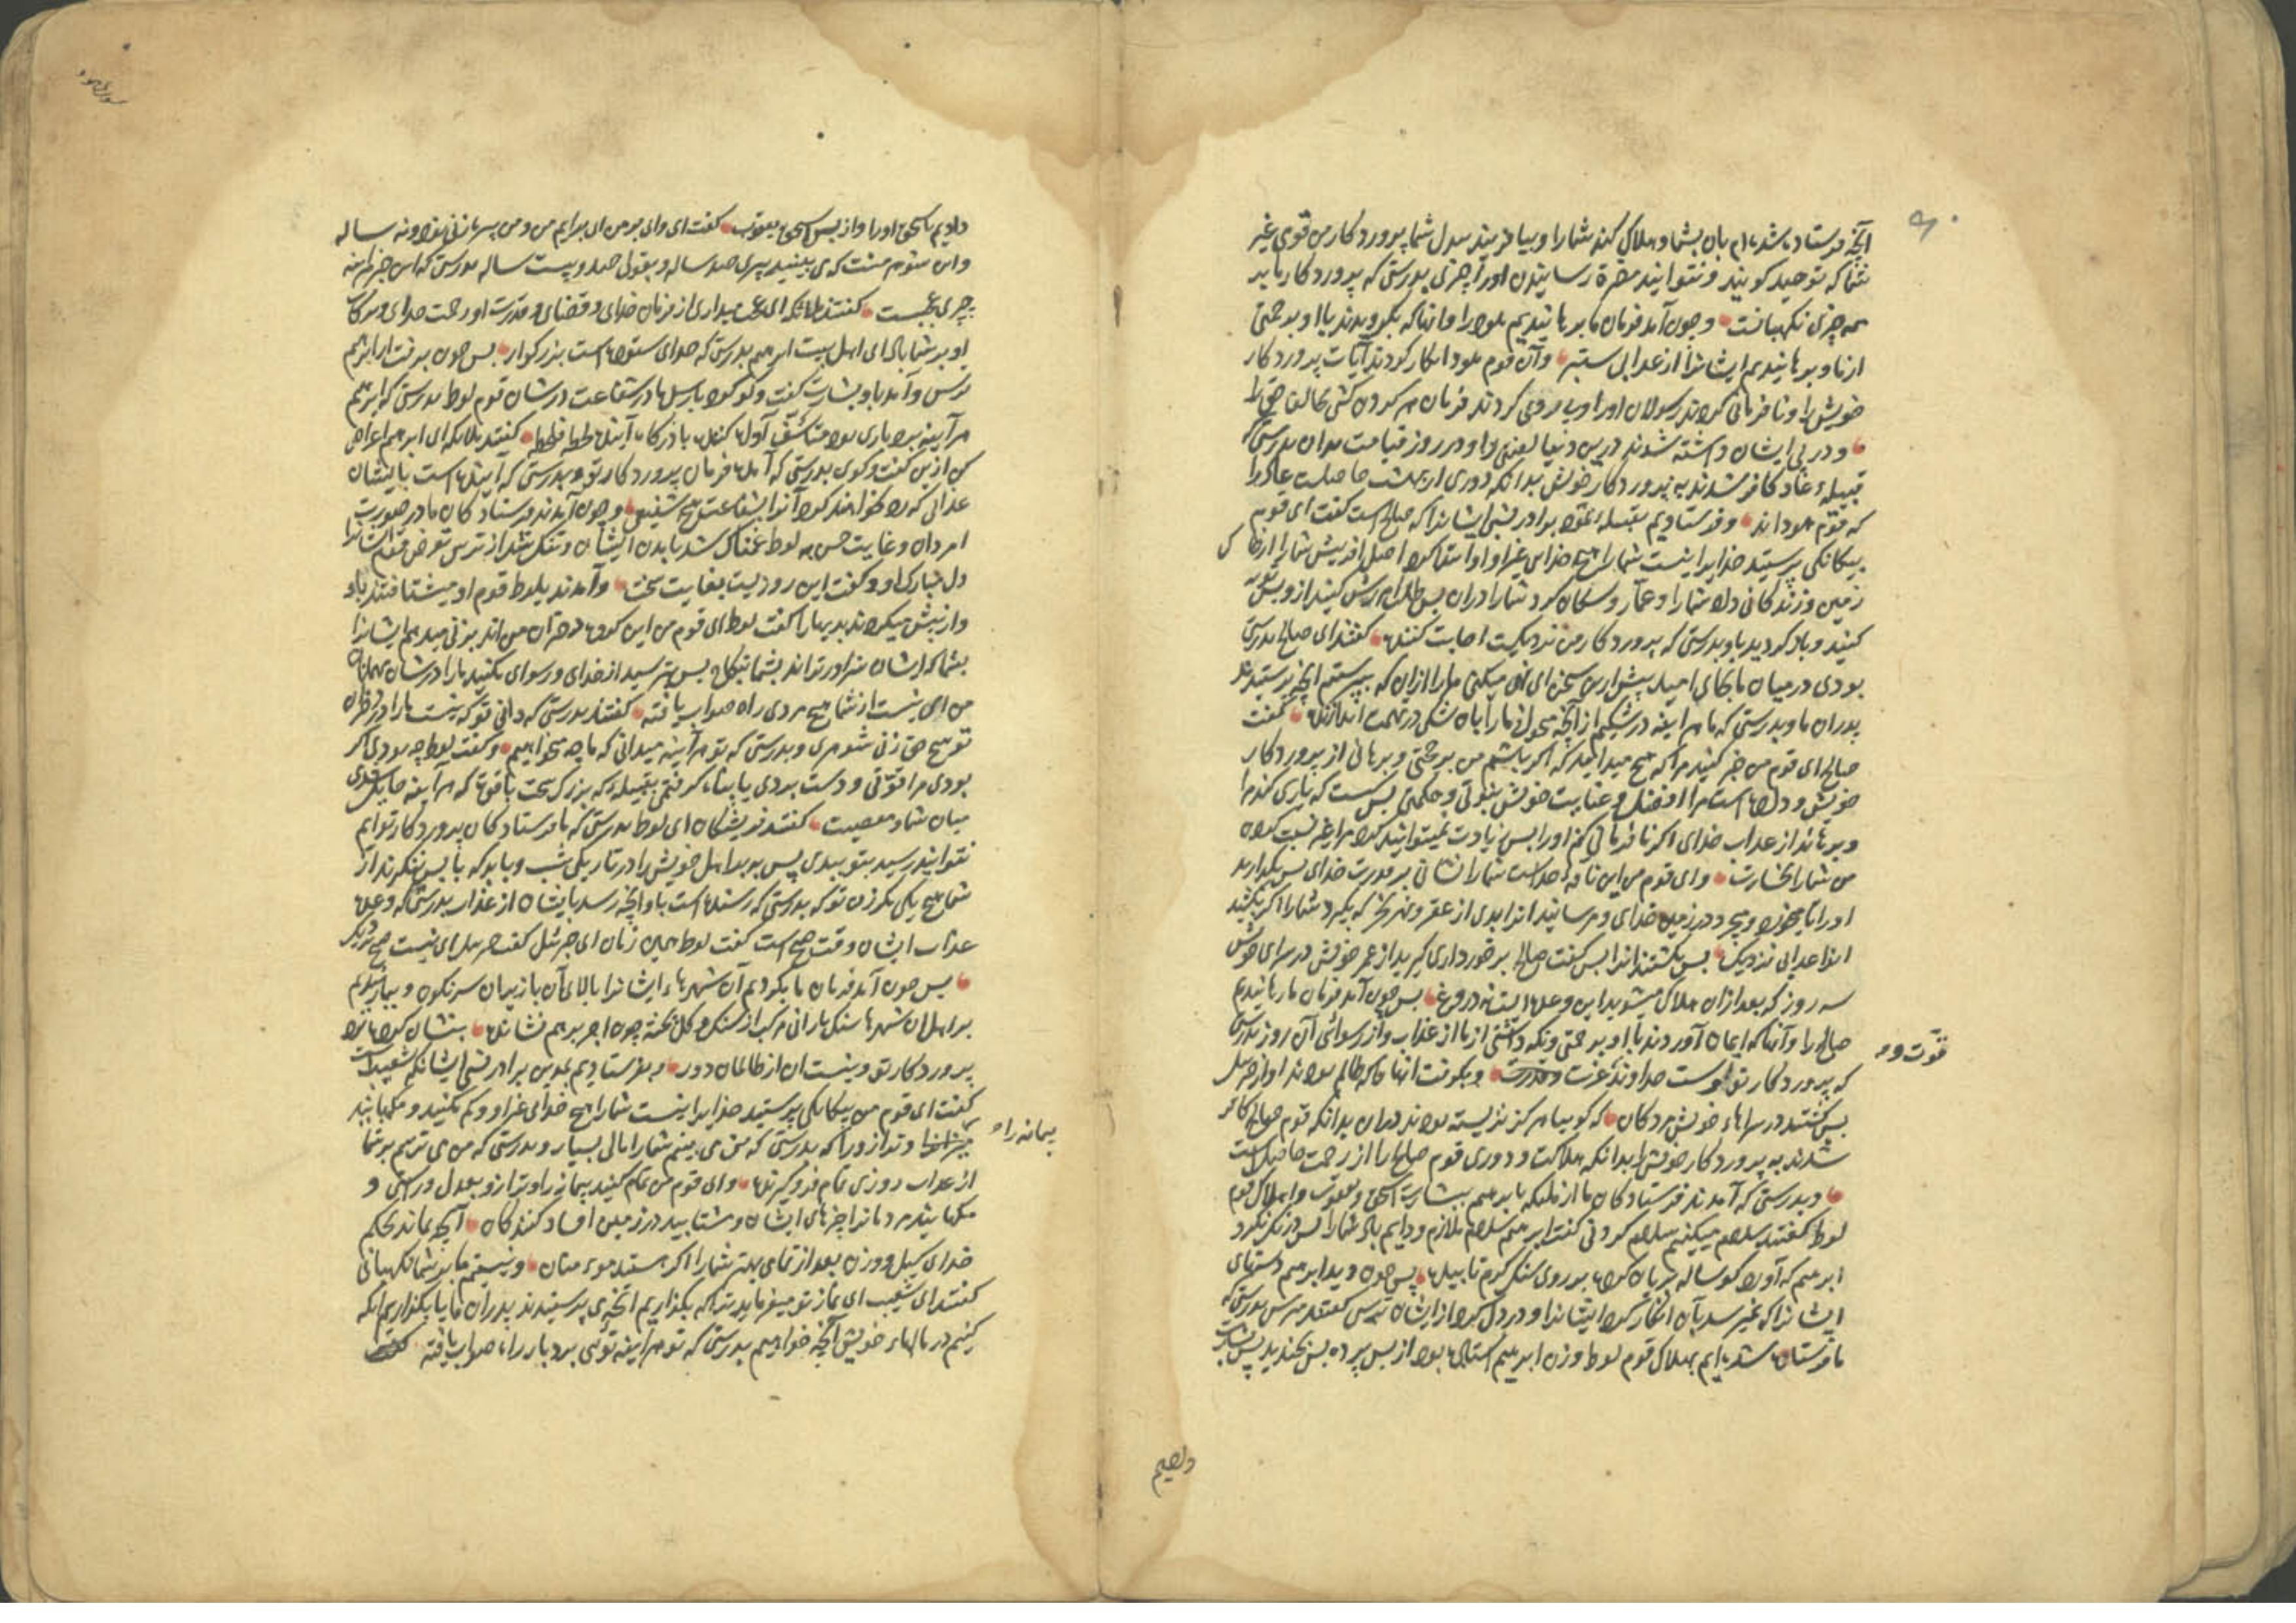 آنچه فرستاده شده‌ام بان بشما و هلاک کند شما را و بیافریند بدل شما پروردکار من قومی غیر
شما که توحید کویند و نتوانید مضرة رسانیدن او را چیزی بدرستی که پروردکار ما بر
همه چیزی نکهبانست و چون آمد فرمان ما برهانیدیم هود را و آنها که بکرویدند با او برحمتی
از ما و برهانیدیم ایشانرا از عذابی ستبر و آن قوم هود انکار کردند آیات پروردکار
خویش را و نافرمانی کردند رسولان او را و پیروی کردند فرمان هر کردن کشی مخالف حق را
و در پی ایشان داشته شدند درین دنیا لعنتی را و در روز قیامت بدان بدرستی که
قبیلهٔ عاد کافر شدند به پروردکار خویش بدانکه دوری از بهشت حاصلست عاد را
که قوم هوداند و فرستادیم بقبیلهٔ ثمود برادر نسبی ایشانرا که صالح است کفت ای قوم
بیکانکی پرستید خدایرا نیست شما را هیچ خدای غیر او او ابتدا کرد اصل افرینش شما را از خاک
زمین و زندکانی داد شما را و عمار و سکان کرد شما را دران پس طلب امرزش کنید ازو پس توبه
کنید و باز کردید باو بدرستی که پروردکار من نزدیکست اجابت کننده کفتند ای صالح بدرستی
بودی در میان ما بجای امید پیش ازین سخن ای نهی میکنی ما را ازان که بپرستیم آنچه پرستیدند
پدران ما و بدرستی که ما هر اینه در شکیم از آنچه میخوانی ما را بان شکی در تهمت اندازنده کفت
صالح ای قوم من خبر کنید مرا که هیچ میدانید که اکر باشم من بر حجتی و برهانی از پروردکار
خویش و داده است مرا از فضل و عنایت خویش نبوتی و حکمتی پس کیست که یاری کند مرا
و برهاند از عذاب خدای اکر نافرمانی کنم او را پس زیادت نمیتوانید کرد مرا غیر نسبت کردن
من شما را بخسارت و ای قوم من این ناقهٔ خداست شما را نشانی بر قدرت خدای پس بکذارید
او را تا بخورد و بچرد در زمین خدای و مرسانید او را بدی از عقر و نحر که بکیرد شما را اکر بکشید
او را عذابی نزدیک پس بکشتند او را پس کفت صالح برخورداری کیرید از عمر خویش در سرای خویش
سه روز که بعد ازان هلاک میشوید این وعده ایست نه دروغ پس چون آمد فرمان ما رهانیدیم
صالح را و آنها که ایمان آوردند با او برحمتی و نکه داشتی از ما از عذاب و از رسوائی آن روز بدرستی
که پروردکار تو اوست خداوند عزت و قدرت و بکرفت انها را که ظالم بودند اواز جبرئیل
قوت و
پس کشتند در سراهاء خویش مردکان که کوییا هرکز نزیسته بودند دران بدانکه قوم صالح کافر
شدند به پروردکار خویش بدانکه هلاکت و دوری قوم صالح را از رحمت حاصل است
و بدرستی که آمدند فرستادکان ما از ملئکه بابرهیم ببشارت اسحق و یعقوب و هلاک قوم
لوط کفتند سلام میکنیم سلام کردنی کفت ابرهیم سلام ملازم و دایم باد شما را پس درنک نکرد
ابرهیم که آورد کوساله بریان کرده بر روی سنک کرم تا بیابد پس چون دید ابرهیم دستهای
ایشانرا که نمیرسد بان انکار کرد ایشانرا و در دل کرد از ایشان ترس کفتند مترس بدرستی که
ما فرستاده شده‌ایم بهلاک قوم لوط و زن ابرهیم استاده بود از پس پرده پس بخندید پس بشارت
دادیم
دادیم باسحق او را و از پس اسحق یعقوب کفت ای وای بر من ای بزایم من و من پیر زنی نود و نه ساله
و این شوهر منست که می بینید پیری صد ساله و بقول صد و بیست ساله بدرستی که این خبر هر اینه
چیزی عجیبست کفتند ملائکه ای عجب میداری از فرمان خدای و قضای و قدرت او رحمت خدای و برکات
او بر شما باد ای اهل بیت ابرهیم بدرستی که خدای ستوده است بزرکوار پس چون برفت از ابرهیم
ترس و آمد باو بشارت کفت و کو کرد با رسل ما در شفاعت در شان قوم لوط بدرستی که ابرهیم
هر آینه بردباری بود متاسف آواه کننده باز کردنده است کفتند ملائکه ای ابرهیم اعراض
کن ازین کفت و کوی بدرستی که آمد فرمان پروردکار تو و بدرستی که آینده است بایشان
عذابی که رد نخواهند کرد آنرا بشفاعت هیچ شفیعی و چون آمدند فرستادکان ما در صورت
امردان و غایت حسن به لوط غمناک شد بدیدن ایشان و تنک شد از ترس تعرض قوم ایشانرا
دل مبارک او و کفت این روزیست بغایت سخت و آمدند بلوط قوم او میشتافتند باو
و از پیش میکردند بدیها را کفت لوط ای قوم من این کروه دختران من اند بزنی میدهم ایشانرا
بشما که ایشان سزاورتراند بشما بنکاح پس بترسید از خدای و رسوای مکنید ما را در شان مهمانان
من ای نیست از شما هیچ مردی راه صواب یافته کفتند بدرستی که دانی تو که نیست ما را در دختران
تو هیچ حق زنی شوهری و بدرستی که تو هر آینه میدانی که ما چه میخواهیم و کفت لوط چه بودی اکر
بودی مرا قوتی و دست بردی یا پناه کرفتمی بقبیله که بزرک سخت با قوت که هر آینه حایل شدی
میان شما و معصیت کفتند فرشتکان ای لوط بدرستی که ما فرستادکان پروردکار تو ایم
نتوانند رسید بتو ببدی پس ببر اهل خویش را در تاریکی شب و باید که باپس ننکرند از
شما هیچ یکی مکر زن تو که بدرستی که رسنده است باو آنچه رسد بایشان از عذاب بدرستی که وعده
عذاب ایشان وقت صبح است کفت لوط همین زمان ای جبرئیل کفت جبرئیل ای نیست صبح نزدیک
پس چون آمد فرمان ما بکردیم آن شهرهاء ایشانرا بالای آن بازیران سرنکون و ببارانیدیم
بر اهل ان شهرها سنک بارانی مرکب از سنک و کل پخته چون اجر برهم نشانده بنشان کرده نزد
پروردکار تو و نیست ان از ظالمان دور و بفرستادیم بمدین برادر نسبی ایشانکه شعیبست
کفت ای قوم من بیکانکی پرستید خدایرا نیست شما را هیچ خدای غیر او و کم مکنید و مکاهانید
پیمانه را
و ترازو را که بدرستی که من می بینم شما را مالی بسیار و بدرستی که من می ترسم بر شما
از عذاب روزی تمام فروکیرنده و ای قوم من تمام کنید پیمانه را و ترازو بعدل و راستی و
مکاهانید مردمانرا چیزهای ایشان و مشتابید در زمین افساد کنندکان آنچه بماند بحکم
خدای کیل و وزن بعد از تمامی بهتر شما را اکر هستید مومنان و نیستم ما بر شما نکهبانی
کفتند ای شعیب ای نماز تو میفرماید ترا که بکذاریم آنچه می پرستیدند پدران ما یا بکذاریم انکه
کنیم در مالهاء خویش آنچه خواهیم بدرستی که تو هر اینه توئی بردبار راه صواب یافته